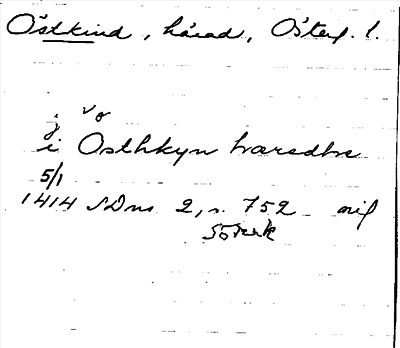 Östkind, härad, Österg. l.
i Østhkyn hæredhe
5/1
1414 SDns 2, s. 752 orig